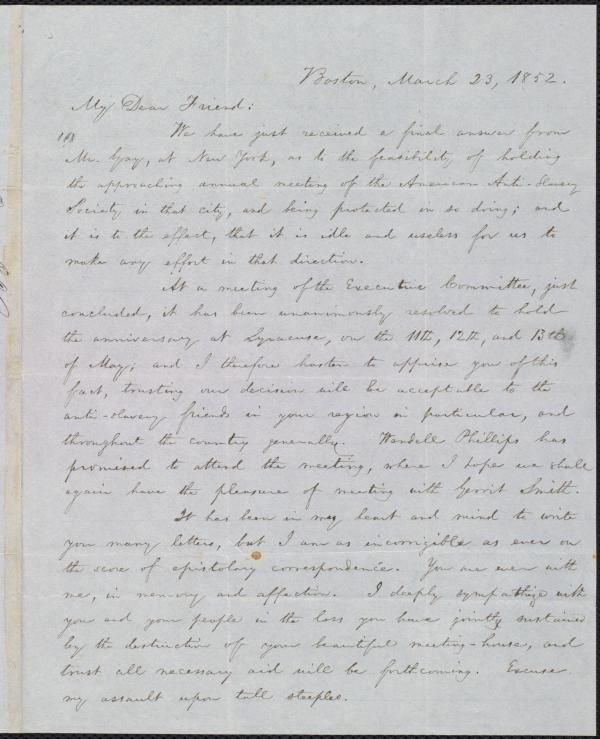 Boston, March 23, 1852.
My Dear Friend:
We have just received a final answer from
Mr. Gay, at New York, as to the feasibility of holding
the approaching annual meeting of the American Anti-Slavery
Society in that city, and being protected in so doing; and
it is to the effect, that it is idle and useless for us to
make any effort in that direction.
At a meeting of the Executive Committee, just
concluded, it has been unanimously resolved to hold
the anniversary at Syracuse, on the 11th, 12th, and 13th
of May; and I therefore hasten to apprise you of this
fact, trusting our decision will be acceptable to the
anti-slavery friends in your region in particular, and
throughout the country generally. Wendell Phillips has
promised to attend the meeting, where I hope we shall
again have the pleasure of meeting with Gerrit Smith.
It has been in my heart and mind to write
you many letters, but I am as incorrigible as ever on
the score of epistolary correspondence. You are ever with
me, in memory and affection. I deeply sympathize with
you and your people in the loss you have jointly sustained
by the destruction of your beautiful meeting-house, and
trust all necessary aid will be forthcoming. Excuse
my assault upon tall steeples.